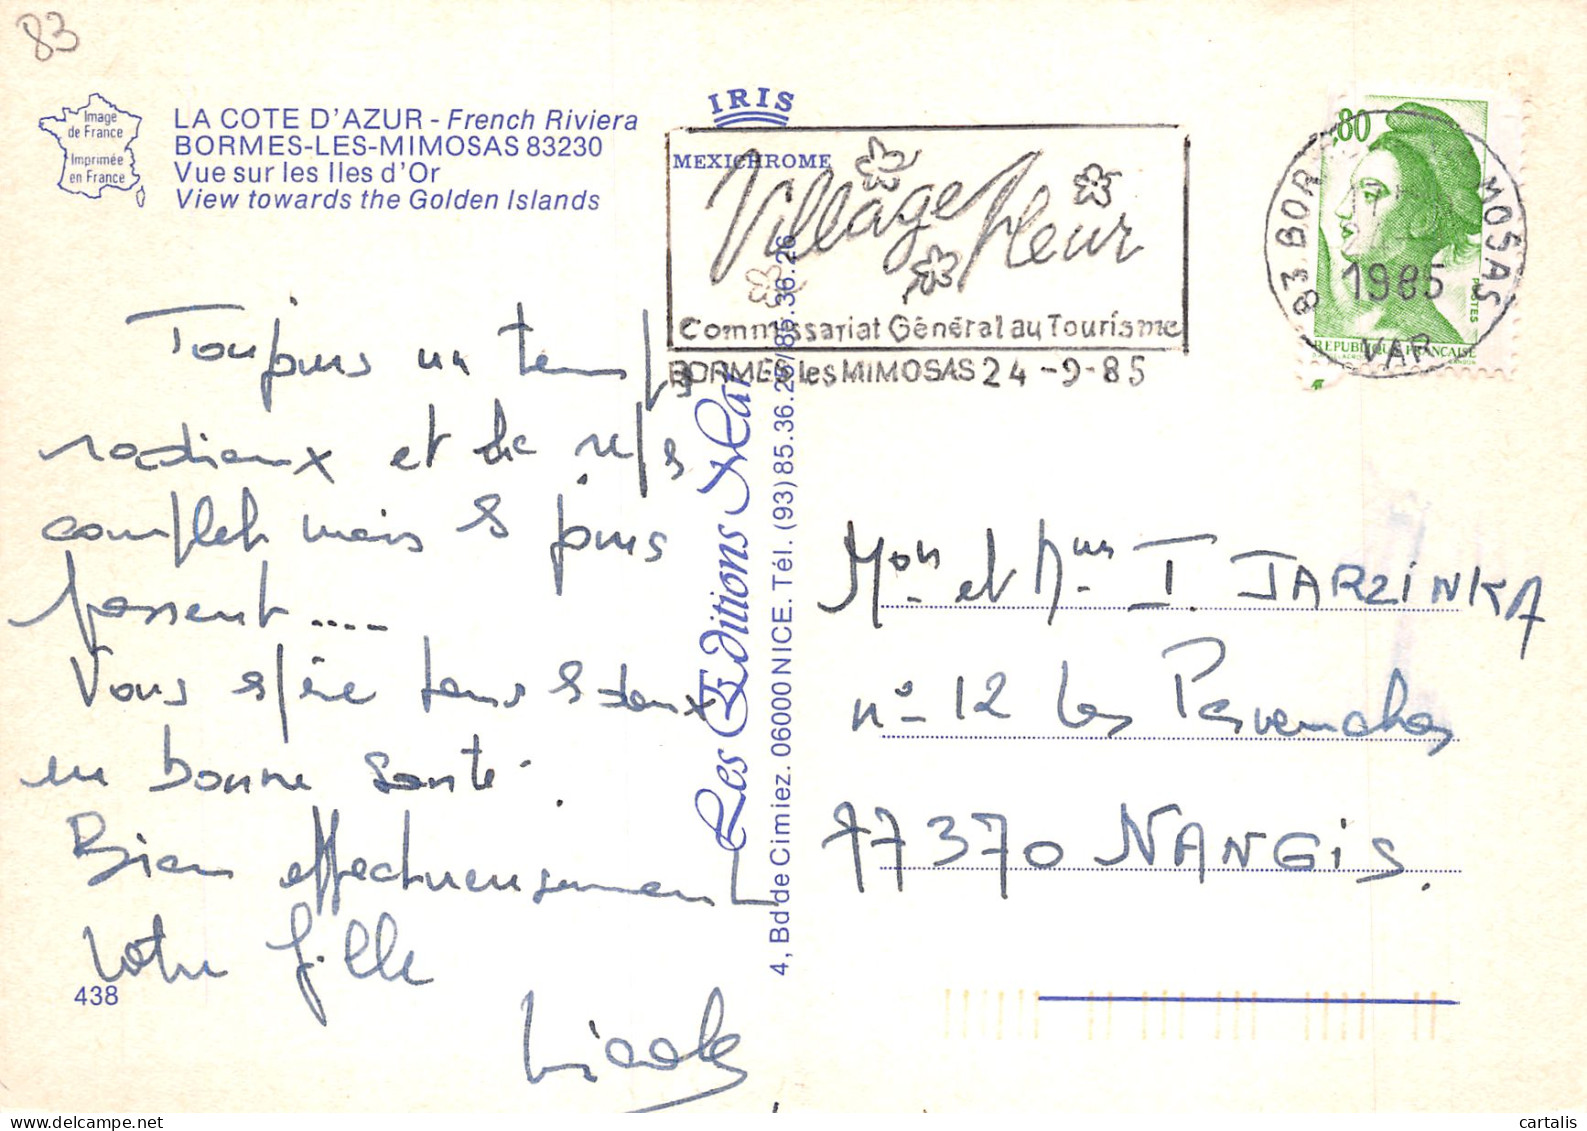 83
Image
de France
Imprimée
en France
LA COTE D'AZUR - French Riviera
BORMES-LES-MIMOSAS 83230
Vue sur les Iles d'Or
View towards the Golden Islands
IRIS
MEXICHROME
Village fleuri
Commissariat Général au Tourisme
BORMES les MIMOSAS 24-9-85
83 BOR MOSAS
1985
VAR
80
POSTES
REPUBLIQUE FRANCAISE
Toujours un temps
radieux et de repos
complet mais les jours
passent ....
Vous espère tous les deux
en bonne santé.
Bien affectueusement
Votre fille
Nicole
438
Les Editions Mar
4, Bd de Cimiez. 06000 NICE. Tél. (93) 85.36.25/85.36.26
Mon et Mme I. JARZINKA
n° 12 les Pervenches
77370 NANGIS.
cartalis